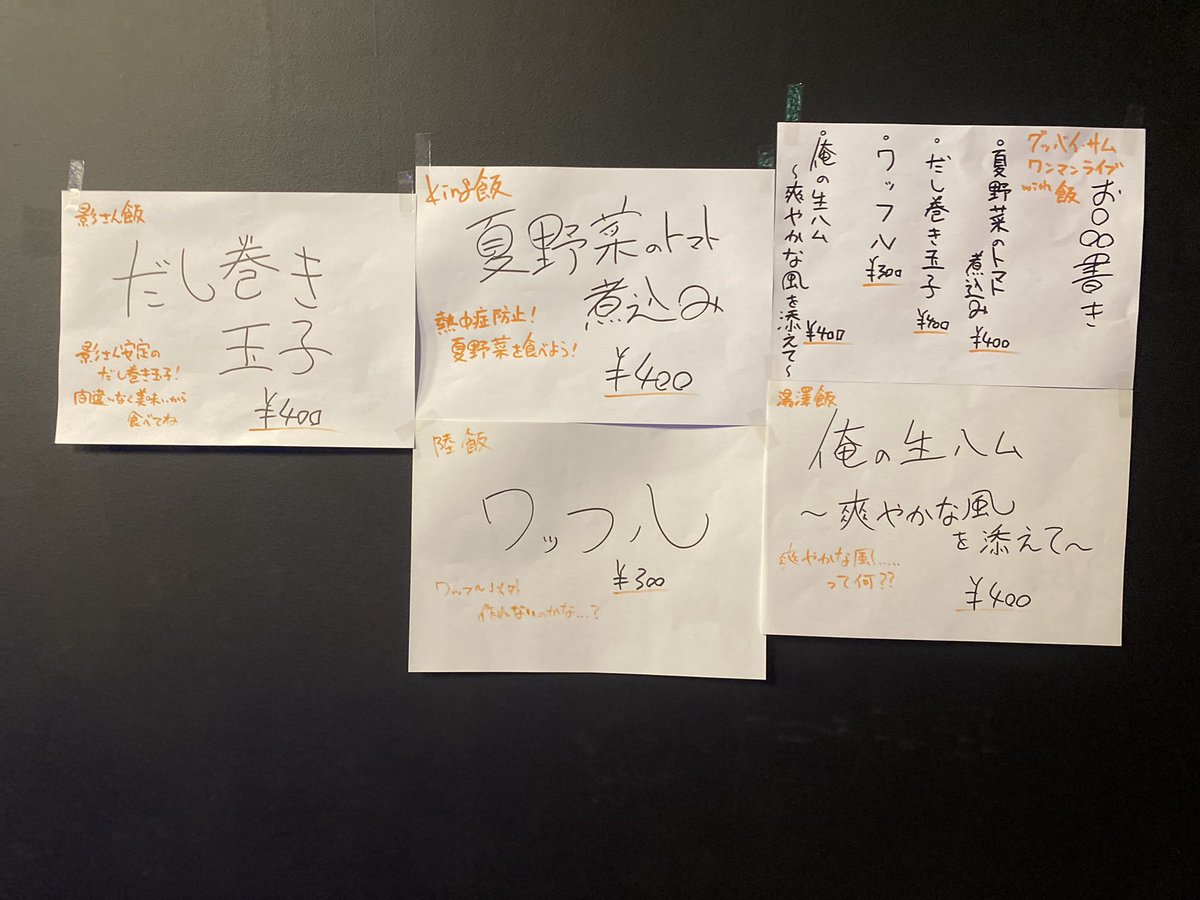 影さん飯
だし巻き
玉子
影さん安定の
だし巻き玉子!
間違いなく美味いから
食べてね
¥400
king飯
夏野菜のトマト
煮込み
熱中症防止!
夏野菜を食べよう!
¥400
陸飯
ワッフル
¥300
ワッフル以外
作れないのかな…?
グッバイ・サム
ワンマンライブ
with飯
お〇〇書き
・夏野菜のトマト
煮込み
¥400
・だし巻き玉子
¥400
・ワッフル
¥300
・俺の生ハム
〜爽やかな風を添えて〜
¥400
湯澤飯
俺の生ハム
〜爽やかな風
を添えて〜
爽やかな風……
って何??
¥400